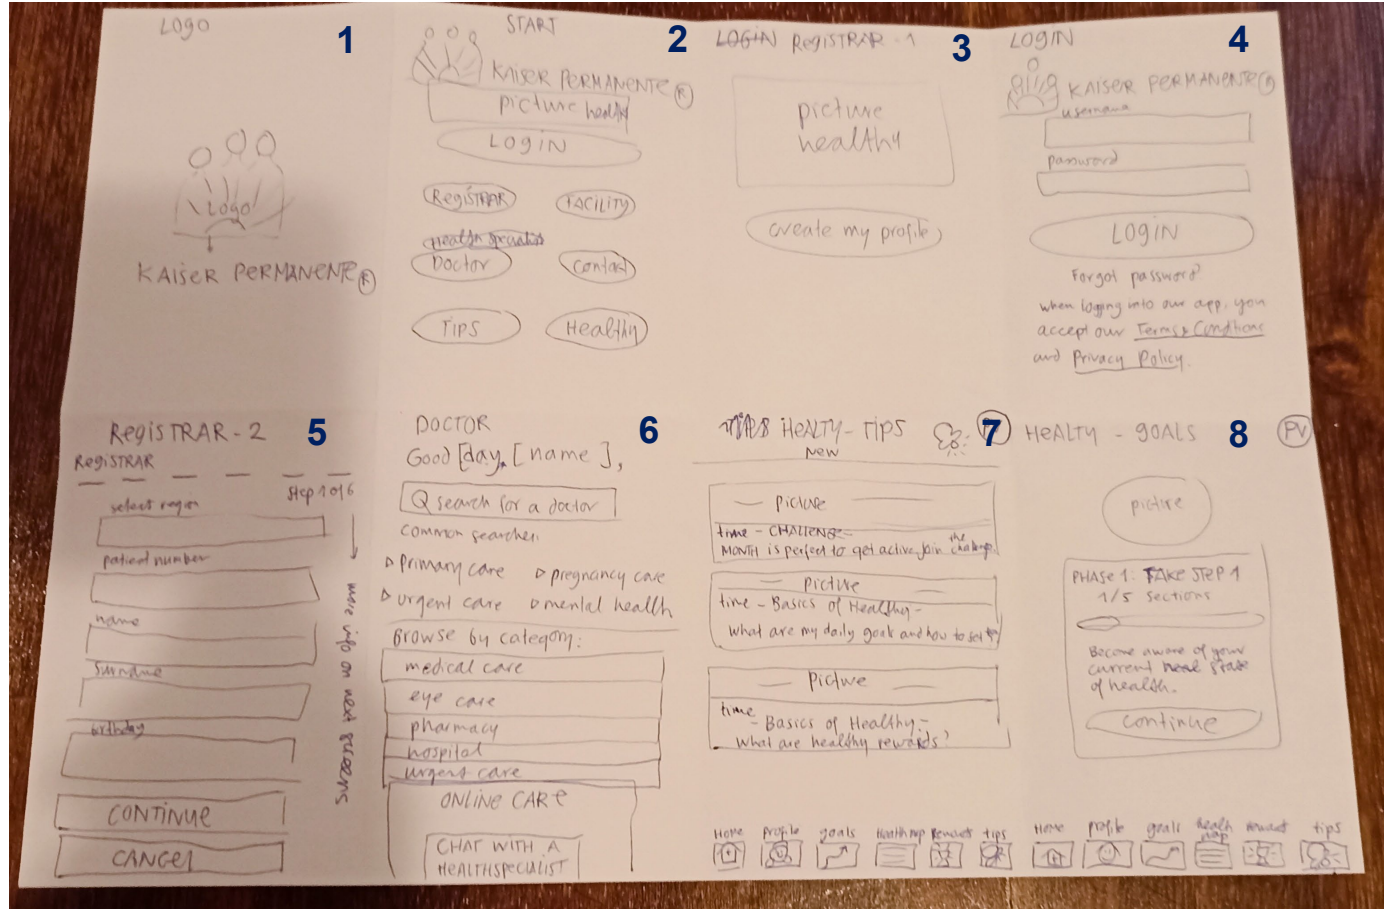 LOGO
1
Logo
KAISER PERMANENTE ®
START
2
KAISER PERMANENTE ®
picture healthy
LOGIN
REGISTRAR
FACILITY
Health specialist
Doctor
Contact
TIPS
Healthy
LOGIN REGISTRAR - 1
3
picture
healthy
create my profile
LOGIN
4
KAISER PERMANENTE ®
username
password
LOGIN
Forgot password
when logging into our app, you
accept our Terms & Conditions
and Privacy Policy.
REGISTRAR - 2
5
REGISTRAR
Step 1 of 6
select region
patient number
name
Surname
birthday
more info on next screens
CONTINUE
CANCEL
DOCTOR
6
Good [day, [name],
Q search for a doctor
common searches
▷ primary care ▷ pregnancy care
▷ urgent care ▷ mental health
Browse by category:
medical care
eye care
pharmacy
hospital
urgent care
ONLINE CARE
CHAT WITH A
HEALTHSPECIALIST
TIPS HEALTY - TIPS
7
New
— picture —
time - CHALLENGE -
MONTH is perfect to get active, join the challenge.
— picture —
time - Basics of Healthy -
what are my daily goals and how to set
— picture —
time
- Basics of Healthy -
what are healthy rewards?
Home profile goals Health map Rewards tips
HEALTY - GOALS
8
PV
picture
PHASE 1: TAKE STEP 1
1/5 sections
Become aware of your
current heal state
of health.
continue
Home profile goals health map reward tips